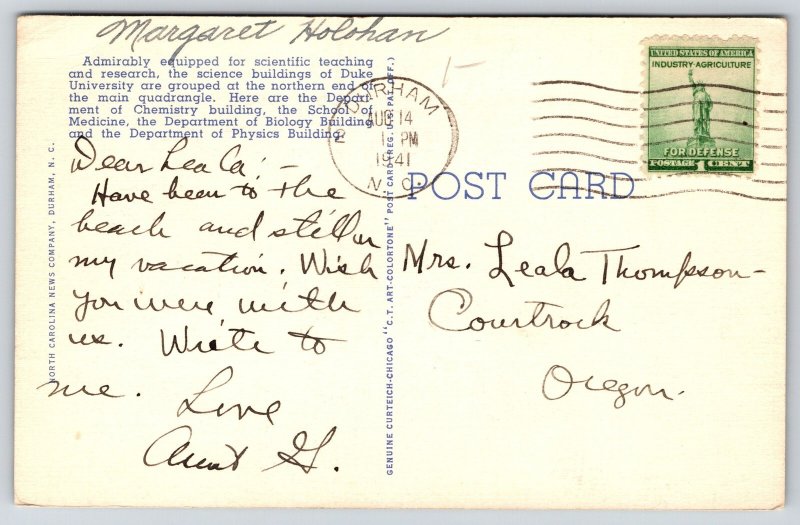 Margaret Holohan
Admirably equipped for scientific teaching
and research, the science buildings of Duke
University are grouped at the northern end of
the main quadrangle. Here are the Depart-
ment of Chemistry building, the School of
Medicine, the Department of Biology Building
and the Department of Physics Building.
Dear Leala; -
Have been to the
beach and still on
my vacation. Wish
you were with
us. Write to
me.
Love
Aunt G.
NORTH CAROLINA NEWS COMPANY, DURHAM, N. C.
GENUINE CURTEICH-CHICAGO "C.T. ART-COLORTONE" POST CARD (REG. U.S. PAT. OFF.)
DURHAM
AUG 14
PM
1941
N. C.
UNITED STATES OF AMERICA
INDUSTRY·AGRICULTURE
FOR DEFENSE
POSTAGE 1 CENT
POST CARD
Mrs. Leala Thompson-
Courtrock
Oregon.